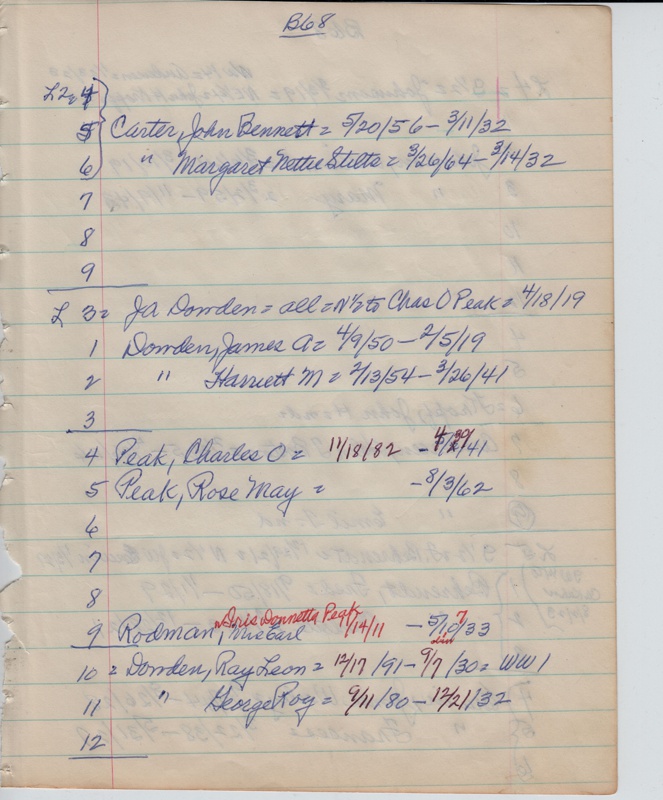 B68
L2= 4
5 Carter, John Bennett = 5/20/56 - 3/11/32
6 " Margaret Nettie Stilts = 3/26/64 - 3/14/32
7
8
9
L 3= JA Dowden = all = N½ to Chas O Peak = 4/18/19
1 Dowden, James A = 4/9/50 - 2/5/19
2 " Harriett M = 2/13/54 - 3/26/41
3
4 Peak, Charles O = 11/18/82 - 41
5 Peak, Rose May = - 8/3/62
6
7
8
Doris Donnetta Peak
9 Rodman, 7/14/11 - 5/10/33
10 = Dowden, Ray Leon = 12/17/91 - 9/7/30 = WW I
11 " George Roy = 9/11/80 - 12/21/32
12